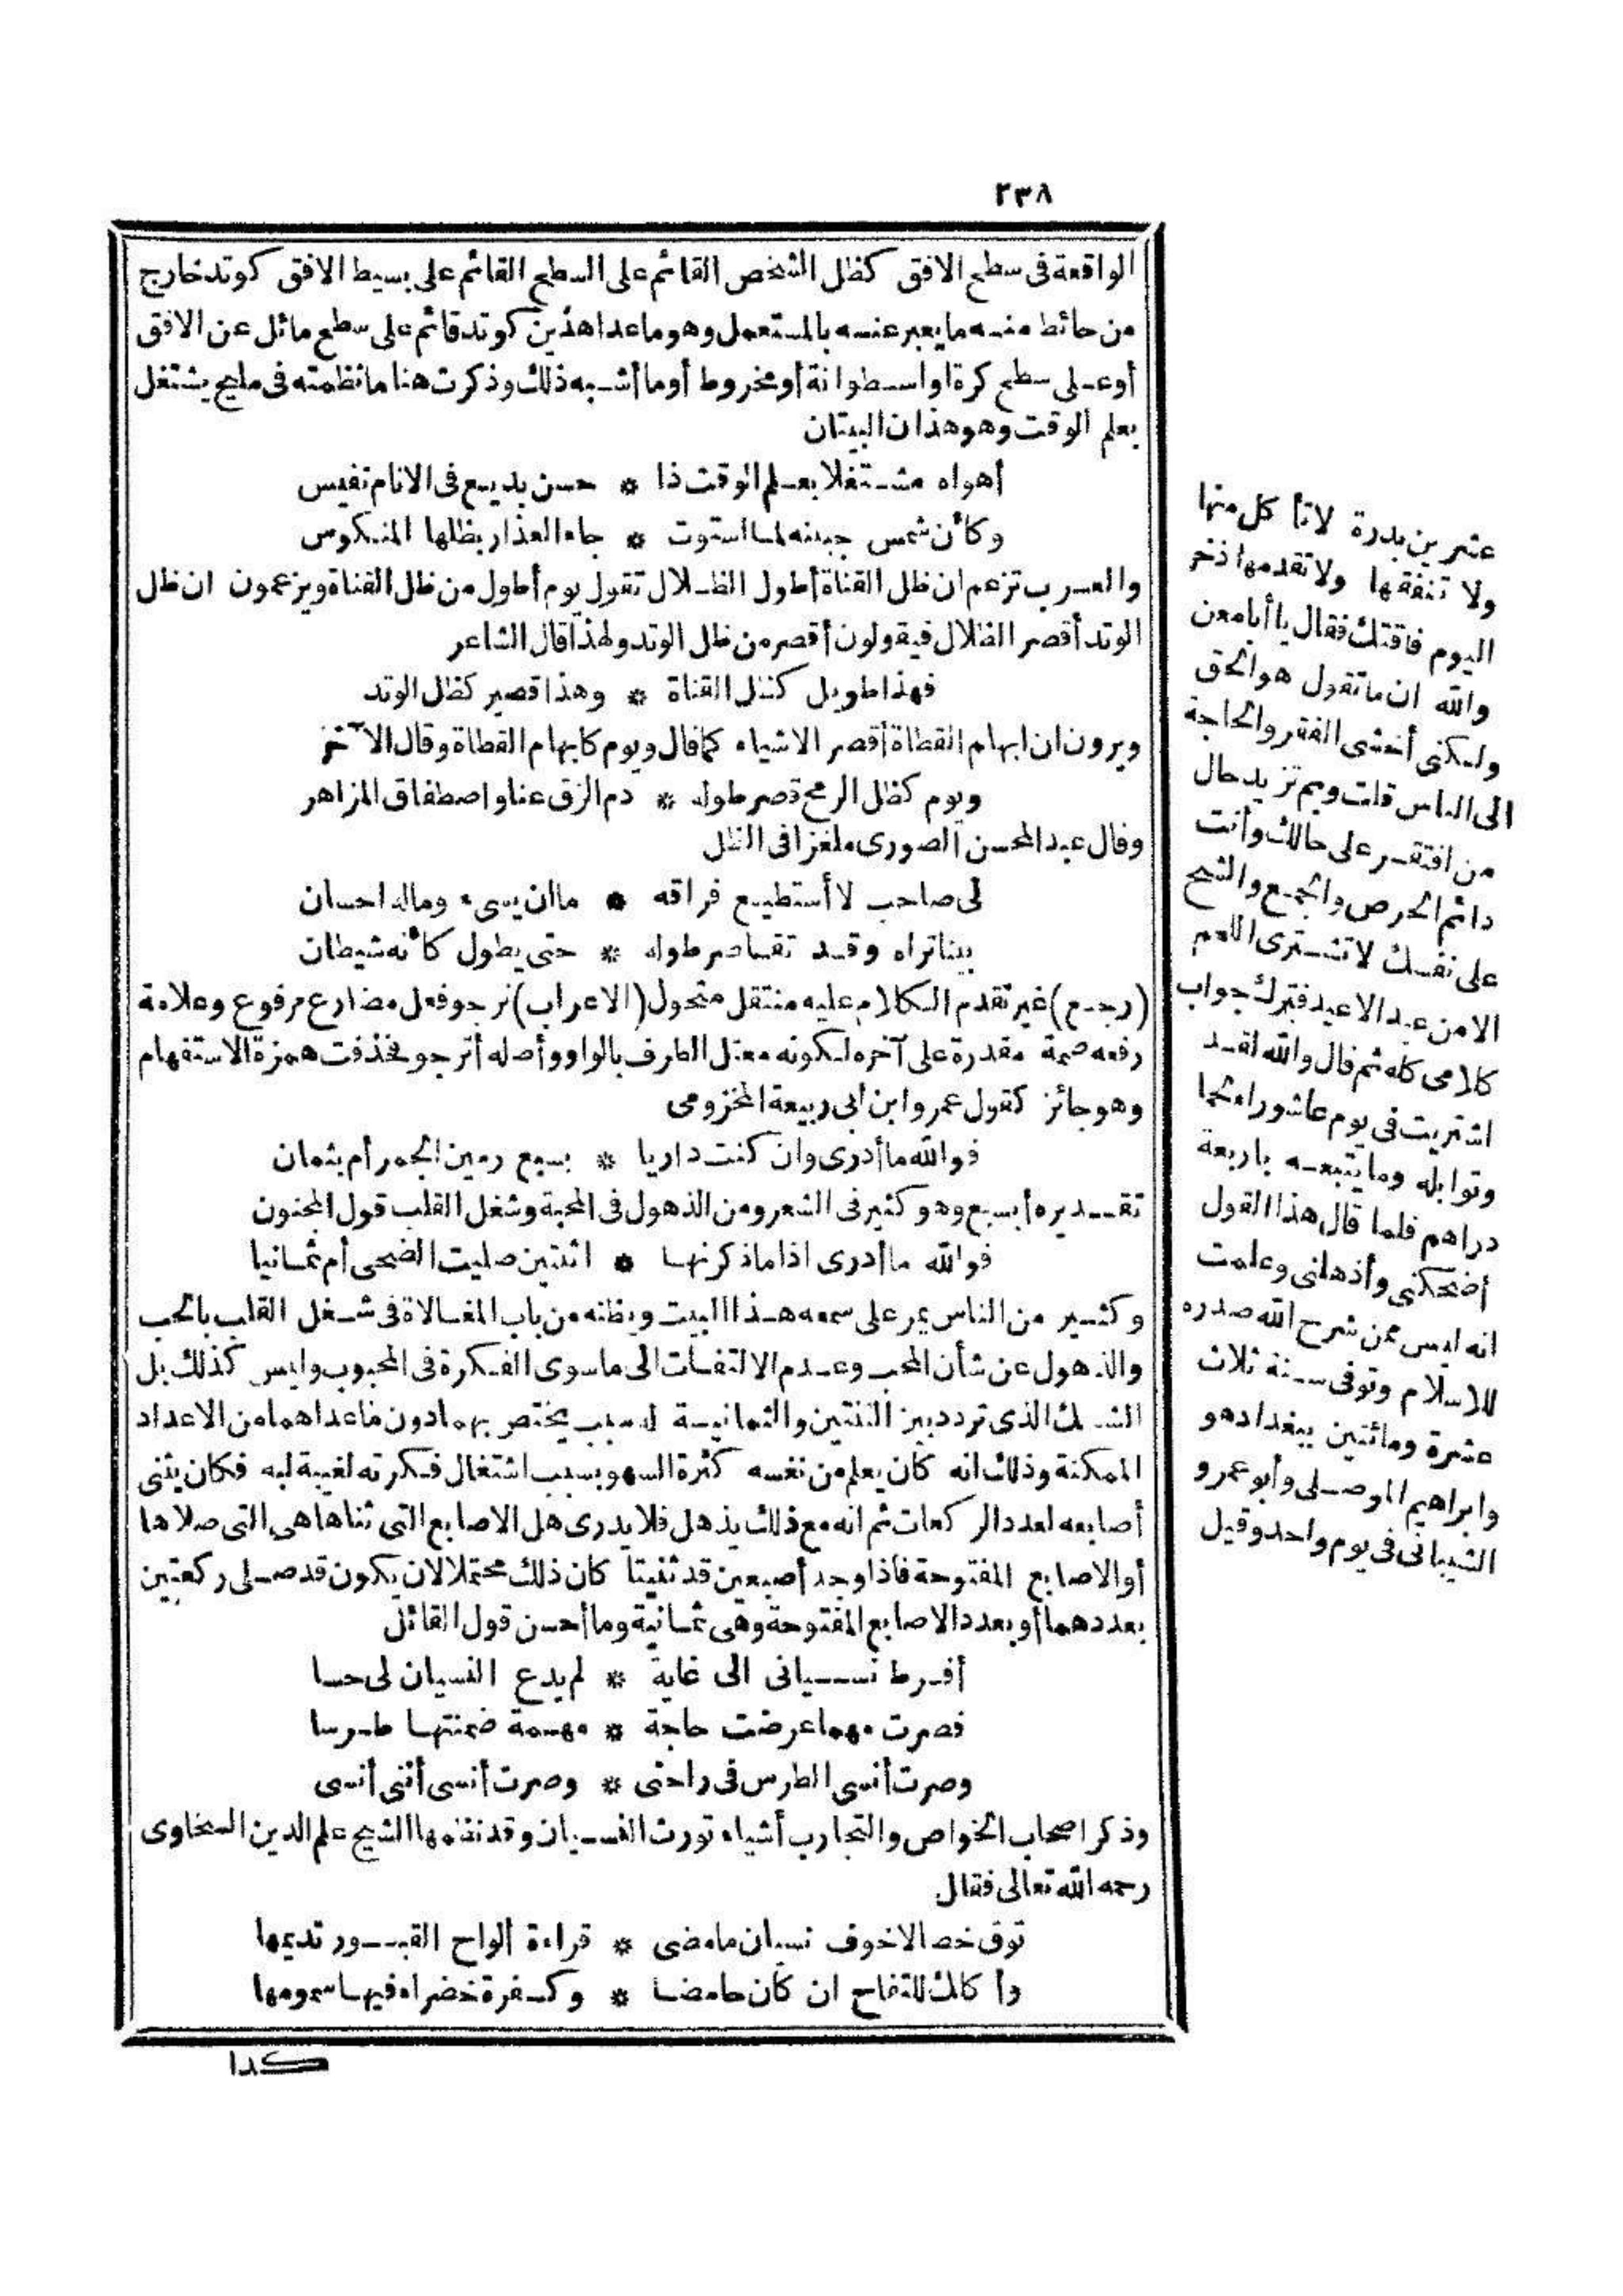 ٢٣٨
الواقعة فى سطح الافق كظل الشخص القائم على السطح القائم على بسيط الافق كوتد خارج
من حائط منه ما يعبر عنه بالمستعمل وهو ما عدا هذين كوتد قائم على سطح مائل عن الافق
أو على سطح كرة او اسطوانة أو مخروط أو ما أشبه ذلك وذكرت هنا ما نظمته فى مليح يشتغل
بعلم الوقت وهو هذان البيتان
أهواه مشتغلا بعلم الوقت ذا * حسن بديع فى الانام نفيس
وكأن شمس جبينه لما استوت * جاء العذار بظلها المنكوس
والعرب تزعم ان ظل القناة أطول الظلال تقول يوم أطول من ظل القناة ويزعمون ان ظل
الوتد أقصر الظلال فيقولون أقصر من ظل الوتد ولهذا قال الشاعر
فهذا طويل كظل القناة * وهذا قصير كظل الوتد
ويرون ان ابهام القطاة أقصر الاشياء كما قال ويوم كابهام القطاة وقال الآخر
ويوم كظل الرمح قصر طوله * دم الزق عنا واصطفاق المزاهر
وقال عبد المحسن الصورى ملغزا فى الظل
لى صاحب لا أستطيع فراقه * ما ان يسىء وماله احسان
بينا تراه وقد تقاصر طوله * حتى يطول كأنه شيطان
(رجع) غير تقدم الكلام عليه منتقل متحول (الاعراب) نرجو فعل مضارع مرفوع وعلامة
رفعه ضمة مقدرة على آخره لكونه معتل الطرف بالواو وأصله أنرجو فحذفت همزة الاستفهام
وهو جائز كقول عمرو ابن ابى ربيعة المخزومى
فوالله ما أدرى وان كنت داريا * بسبع رمين الجمر أم بثمان
تقديره أبسبع وهو كثير فى الشعر ومن الذهول فى المحبة وشغل القلب قول المجنون
فوالله ما أدرى اذا ما ذكرتها * اثنتين صليت الضحى أم ثمانيا
وكثير من الناس يمر على سمعه هذا البيت ويظنه من باب المغالاة فى شغل القلب بالحب
والذهول عن شأن المحب وعدم الالتفات الى ما سوى الفكرة فى المحبوب وليس كذلك بل
الشك الذى تردد بين الثنتين والثمانية له سبب يختص بهما دون ما عداهما من الاعداد
الممكنة وذلك انه كان يعلم من نفسه كثرة السهو بسبب اشتغال فكرته لغيبة لبه فكان يثنى
أصابعه لعدد الركعات ثم انه مع ذلك يذهل فلا يدرى هل الاصابع التى ثناها هى التى صلاها
أو الاصابع المفتوحة فاذا وجد أصبعين قد ثنيتا كان ذلك محتملا لان يكون قد صلى ركعتين
بعددهما أو بعدد الاصابع المفتوحة وهى ثمانية وما أحسن قول القائل
أفرط نسيانى الى غاية * لم يدع النسيان لى حسا
فصرت مهما عرضت حاجة * مهمة ضمنتها طرسا
وصرت أنسى الطرس فى راحتى * وصرت أنسى أننى أنسى
وذكر اصحاب الخواص والتجارب أشياء تورث النسيان وقد نظمها الشيخ علم الدين السخاوى
رحمه الله تعالى فقال
توق خصالا خوف نسيان ما مضى * قراءة ألواح القبور تديمها
وأكلك للتفاح ان كان حامضا * وكسفرة خضراء فيها سمومها
كدا
عشرين بدرة لا تأكل منها
ولا تنفقها ولا تقدمها ذخر
اليوم فاقتك فقال يا أبا معن
والله ان ما تقول هو الحق
ولكنى أخشى الفقر والحاجة
الى الناس قلت وبم تزيد حال
من افتقر على حالك وأنت
دائم الحرص والجمع والشح
على نفسك لا تشترى اللحم
الا من عيد الا عيد فترك جواب
كلامى كله ثم قال والله لقد
اشتريت فى يوم عاشوراء لحما
وتوابله وما يتبعه باربعة
دراهم فلما قال هذا القول
أضحكنى وأذهلنى وعلمت
انه ليس ممن شرح الله صدره
للاسلام وتوفى سنة ثلاث
عشرة ومائتين ببغداد هو
وابراهيم الموصلى وأبو عمرو
الشيبانى فى يوم واحد وقيل